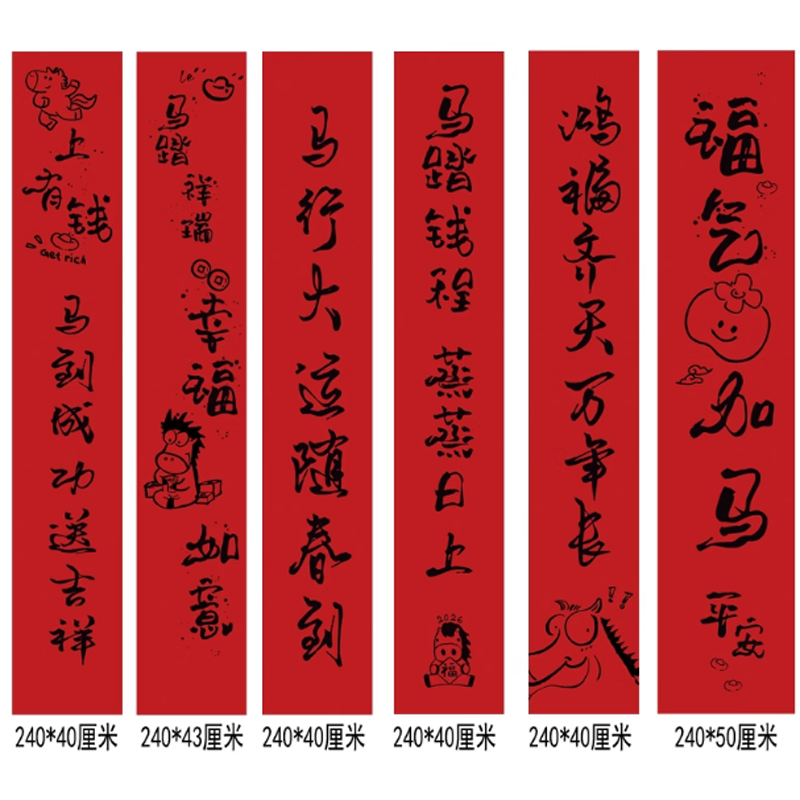 上
有钱
Get rich
马到成功送吉祥
马踏
祥瑞
幸福
如意
马行大运随春到
马踏钱程
蒸蒸日上
2026
福
鸿福齐天万年长
!?
福气
加马
平安
240*40厘米
240*43厘米
240*40厘米
240*40厘米
240*40厘米
240*50厘米